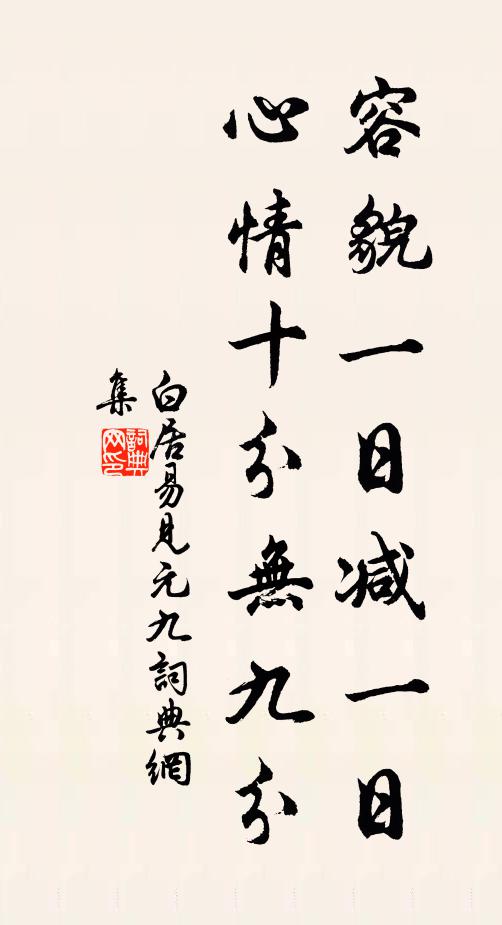 容貌一日減一日
心情十分無九分
白居易見元九詞典網
集
詞典
网印